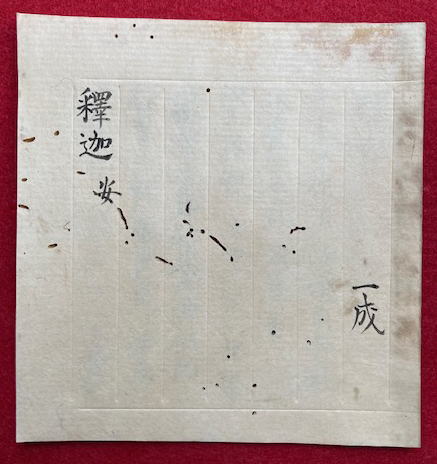 一成
釋迦安